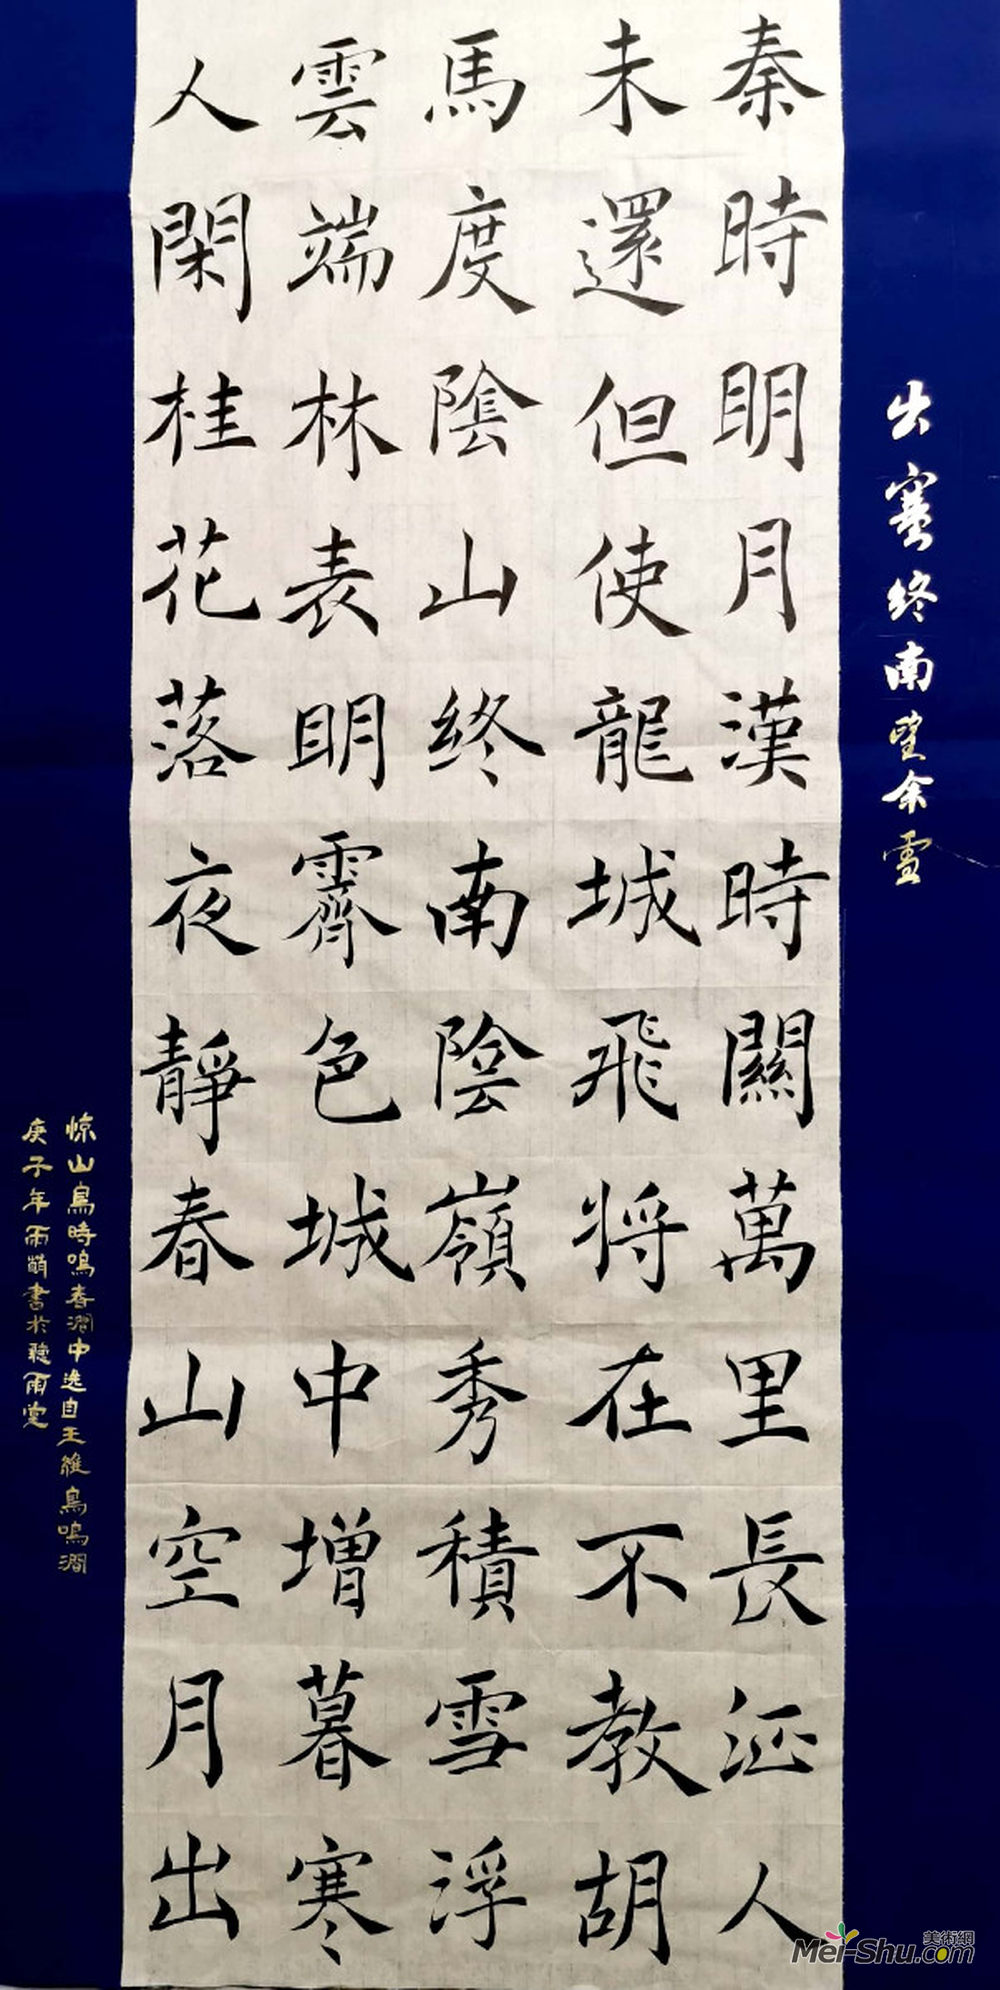 出塞终南望余雪
秦時眀月漢時關萬里長征人
未還但使龍城飛将在不教胡
馬度陰山终南陰嶺秀積雪浮
雲端林表眀霽色城中增暮寒
人閑桂花落夜靜春山空月出
惊山鳥時鳴春澗中选自王維鳥鳴澗
庚子年雨萌書於聽雨堂
美術網
Mei-Shu.com